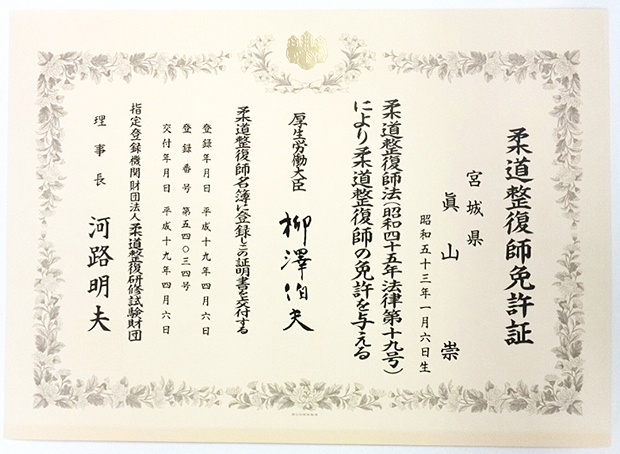 柔道整復師免許証
宮城県
眞山 崇
昭和五十三年一月六日生
柔道整復師法(昭和四十五年法律第十九号)
により柔道整復師の免許を与える
厚生労働大臣 柳澤伯夫
柔道整復師名簿に登録しこの証明書を交付する
登録年月日 平成十九年四月六日
登録番号 第五四〇三四号
交付年月日 平成十九年四月六日
指定登録機関財団法人柔道整復研修試験財団
理事長 河路明夫